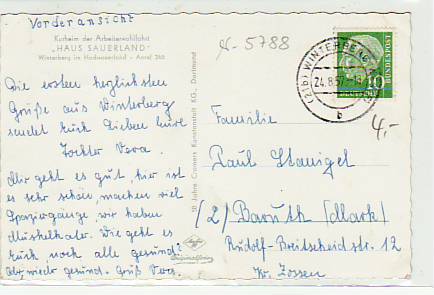 Vorderansicht
Kurheim der Arbeiterwohlfahrt
„HAUS SAUERLAND"
Winterberg im Hochsauerland - Anruf 266
N-5788
Die ersten herzlichsten
Grüße aus Winterberg
sendet Euch Lieben Eure
Tochter Vera.
Mir geht es gut, hier ist
es sehr schön, machen viel
Spaziergänge, wir haben
Muskelkater. Wie geht es
Euch noch alle gesund?
Gruß Vera.
50 Jahre Cramers Kunstanstalt KG., Dortmund
Agfa
WINTERBERG
24.8.57
b
10
DEUTSCHE BUNDESPOST
4,-
Familie
Paul Stanigel
(2) Baruth (Mark)
Rudolf-Breitscheidstr. 12
Kr. Zossen